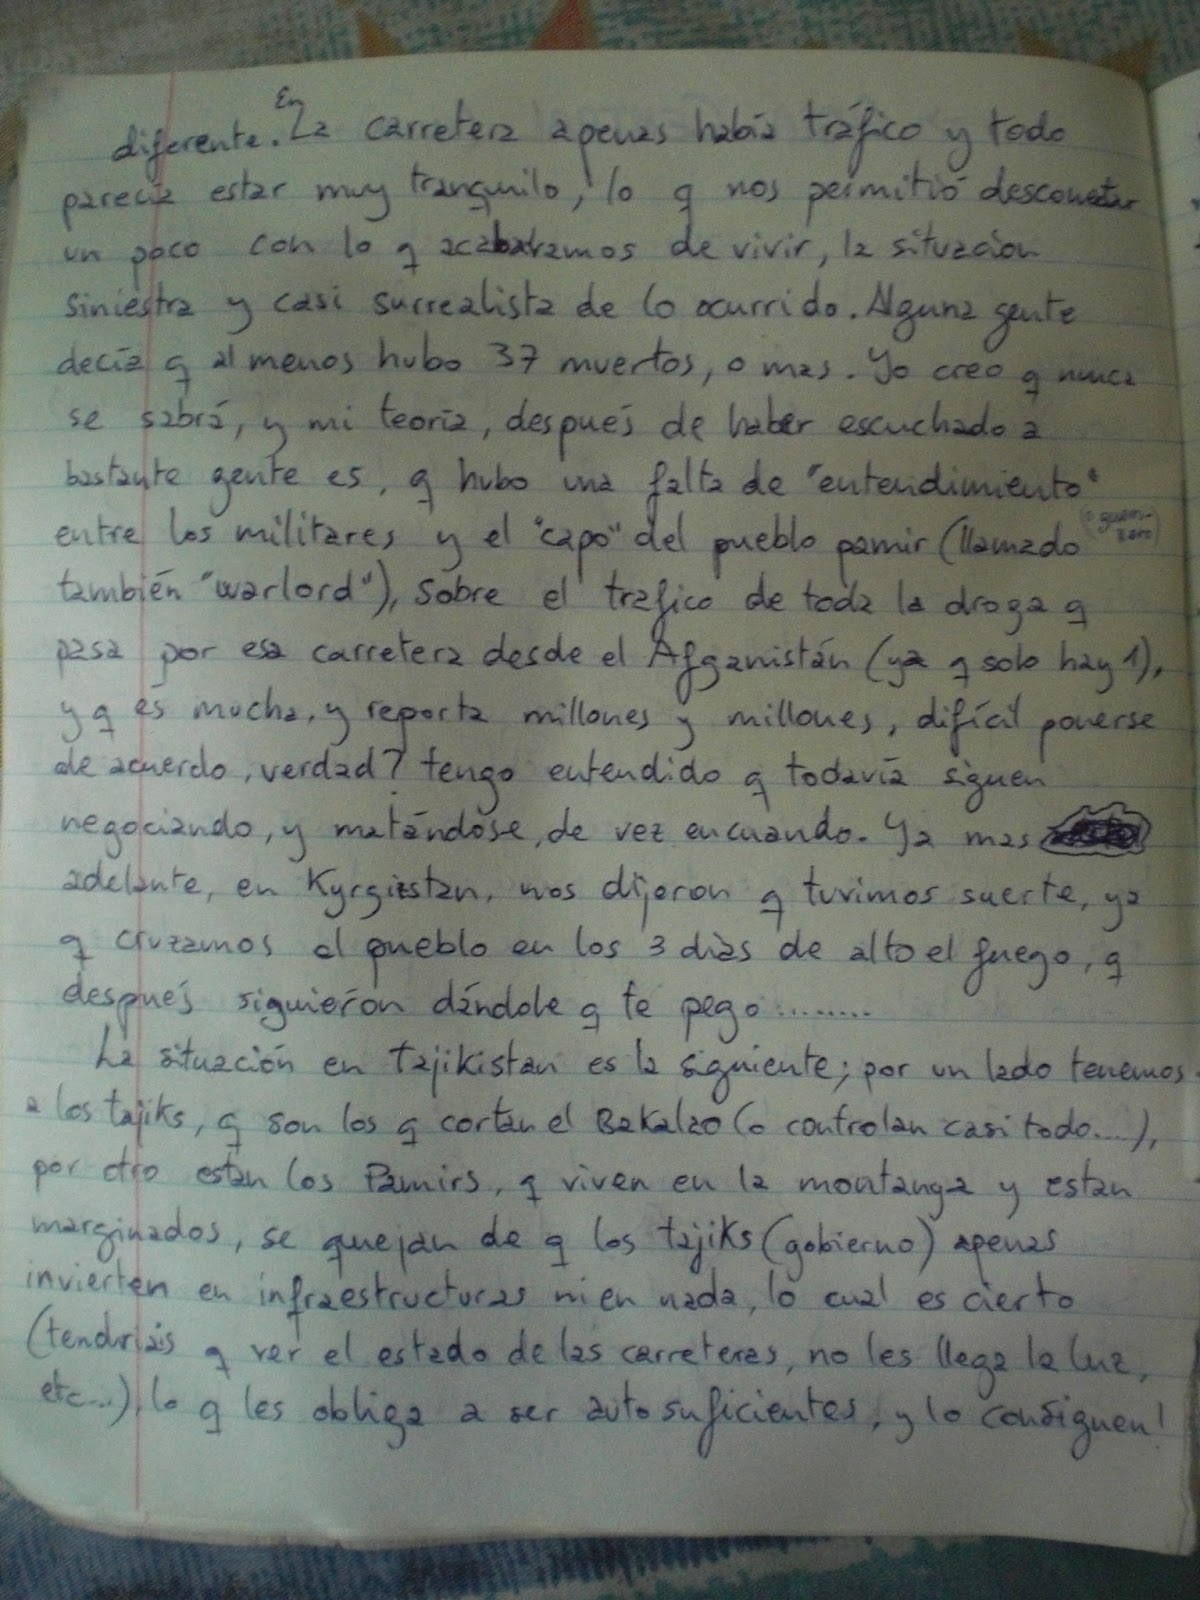 diferente. En La carretera apenas había tráfico y todo
parecía estar muy tranquilo, lo q nos permitió desconectar
un poco con lo q acabaramos de vivir, la situacion
siniestra y casi surrealista de lo ocurrido. Alguna gente
decía q al menos hubo 37 muertos, o mas. Yo creo q nunca
se sabrá, y mi teoría, después de haber escuchado a
bastante gente es, q hubo una falta de "entendimiento"
entre los militares y el "capo" del pueblo pamir (llamado
también "warlord"), sobre el trafico de toda la droga q
pasa por esa carretera desde el Afganistán (ya q solo hay 1),
y q es mucha, y reporta millones y millones, difícil ponerse
de acuerdo, verdad? tengo entendido q todavía siguen
negociando, y matándose, de vez en cuando. Ya mas
adelante, en Kyrgizstan, nos dijeron q tuvimos suerte, ya
q cruzamos el pueblo en los 3 días de alto el fuego, q
después siguierón dándole q te pego ........
La situación en Tajikistan es la siguiente; por un lado tenemos
a los tajiks, q son los q cortan el Bakalao (o controlan casi todo....),
por otro estan los Pamirs, q viven en la montanga y estan
marginados, se quejan de q los tajiks (gobierno) apenas
invierten en infraestructuras ni en nada, lo cual es cierto
(tendriais q ver el estado de las carreteras, no les llega la luz,
etc...), lo q les obliga a ser autosuficientes, y lo consiguen!